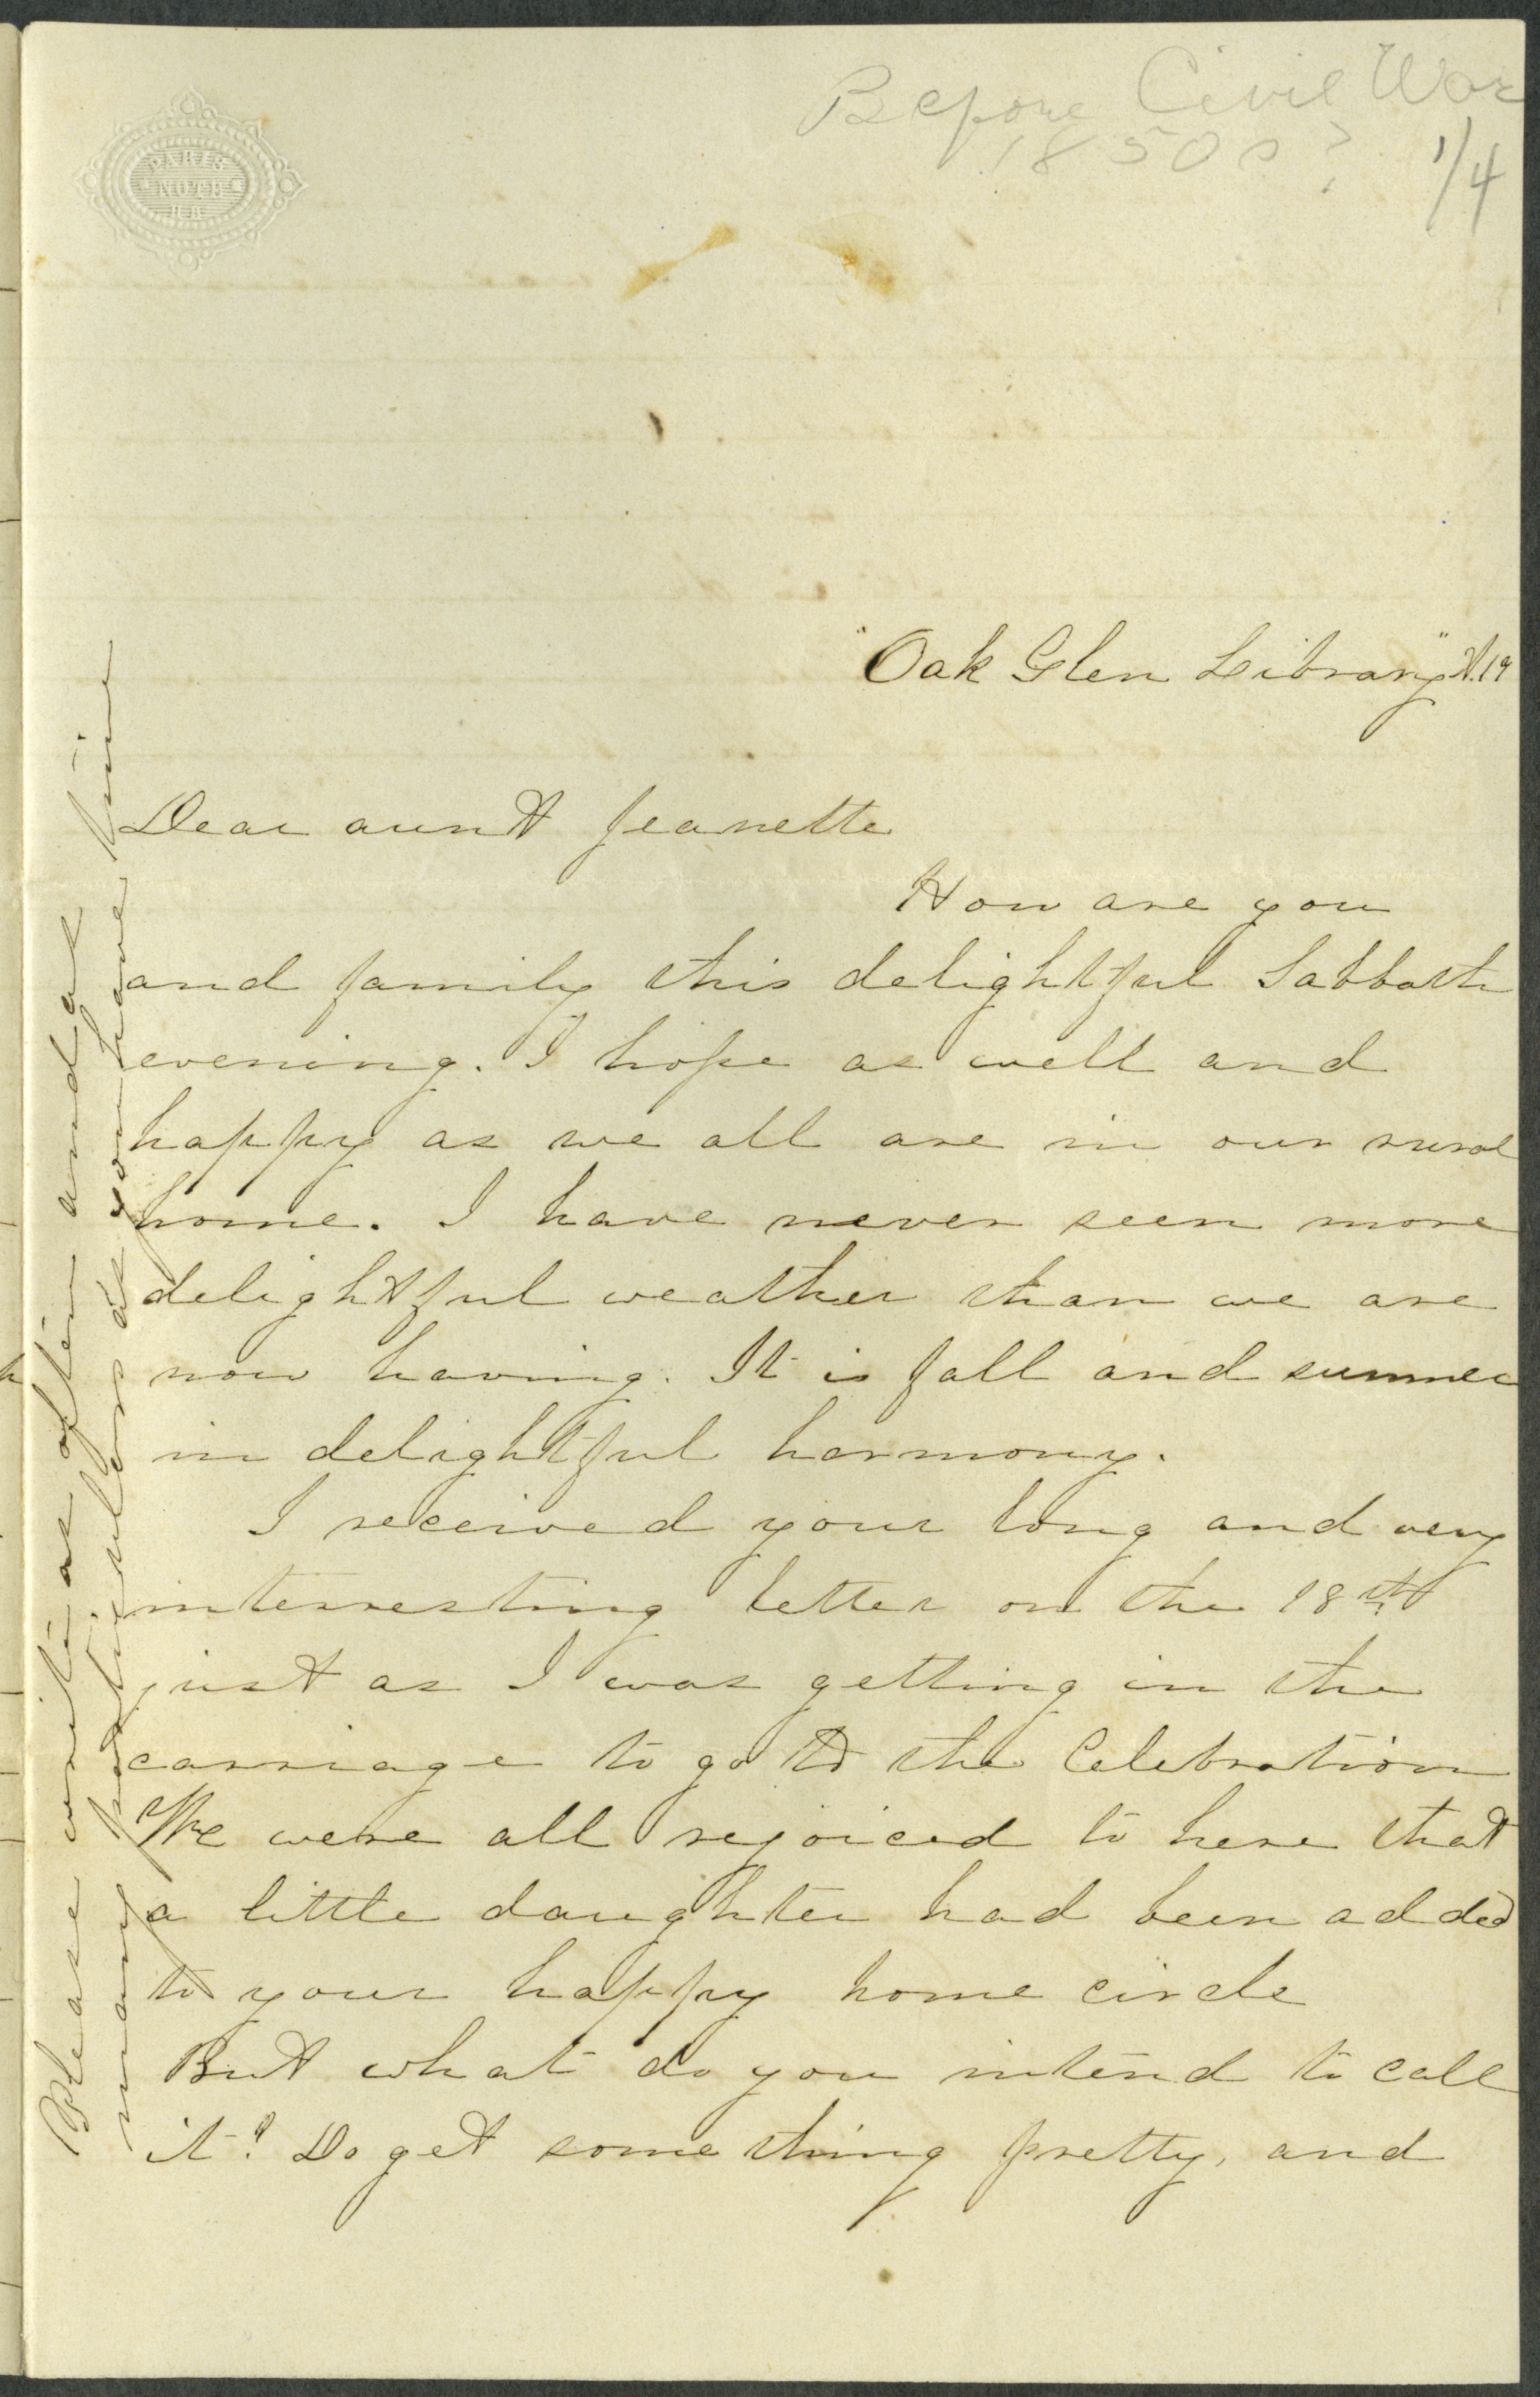 Before Civil War
1850s?
1/4
PARIS
NOTE
"Oak Glen Library"
Dear aunt Jeanette
How are you
and family this delightful Sabbath
evening. I hope as well and
happy as we all are in our rural
home. I have never seen more
delightful weather than we are
now having. It is fall and summer
in delightful harmony.
I received your long and very
interresting letter on the 18th
just as I was getting in the
carriage to go to the Celebration
We were all rejoiced to here that
a little daughter had been added
to your happy home circle
But what do you intend to call
it? Do get some thing pretty, and
Please write as often and at
many particulars as you have time